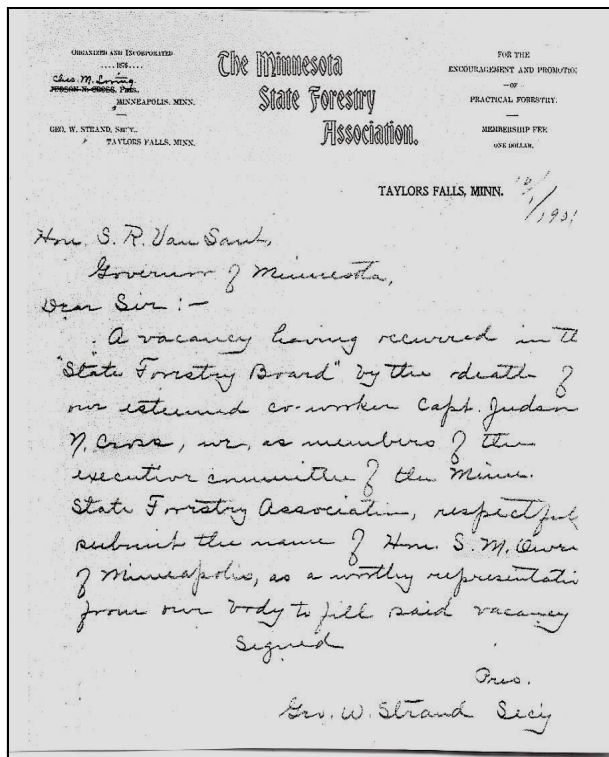 ORGANIZED AND INCORPORATED
....1876....
Chas. M. Loring
JUDSON N. CROSS, PRES.,
MINNEAPOLIS, MINN.
GEO. W. STRAND, SEC'Y.,
TAYLORS FALLS, MINN.
The Minnesota
State Forestry
Association.
FOR THE
ENCOURAGEMENT AND PROMOTION
—OF—
PRACTICAL FORESTRY.
MEMBERSHIP FEE
ONE DOLLAR.
TAYLORS FALLS, MINN.
Hon. S. R. Van Sant,
Governor of Minnesota,
Dear Sir :-
A vacancy having occurred in th
"State Forestry Board" by the death of
our esteemed co-worker Capt. Judson
N. Cross, we, as members of the
executive committee of the Minn.
State Forestry Association, respectful
submit the name of Hon. S. M. Owen
of Minneapolis, as a worthy representativ
from our body to fill said vacancy
Signed
Pres.
Geo. W. Strand Sec'y